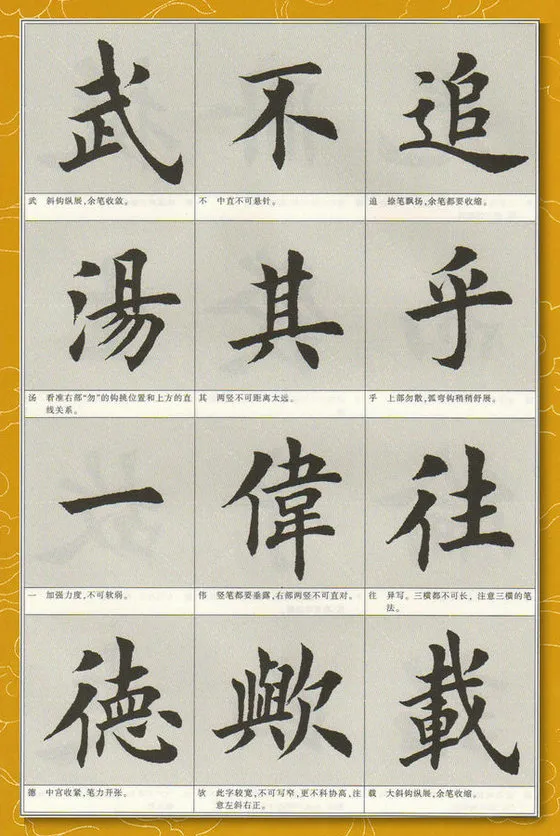 武
不
追
武 斜钩纵展,余笔收敛。
不 中直不可悬针。
追 捺笔飘扬,余笔都要收缩。
湯
其
乎
汤 看准右部“勿”的钩挑位置和上方的直
线关系。
其 两竖不可距离太远。
乎 上部勿散,弧弯钩稍稍舒展。
一
偉
往
一 加强力度,不可软弱。
伟 竖笔都要垂露,右部两竖不可直对。
往 异写。三横都不可长,注意三横的笔
法。
德
歟
載
德 中宫收紧,笔力开张。
欤 此字较宽,不可写窄,更不科协高,注
意左斜右正。
载 大斜钩纵展,余笔收缩。